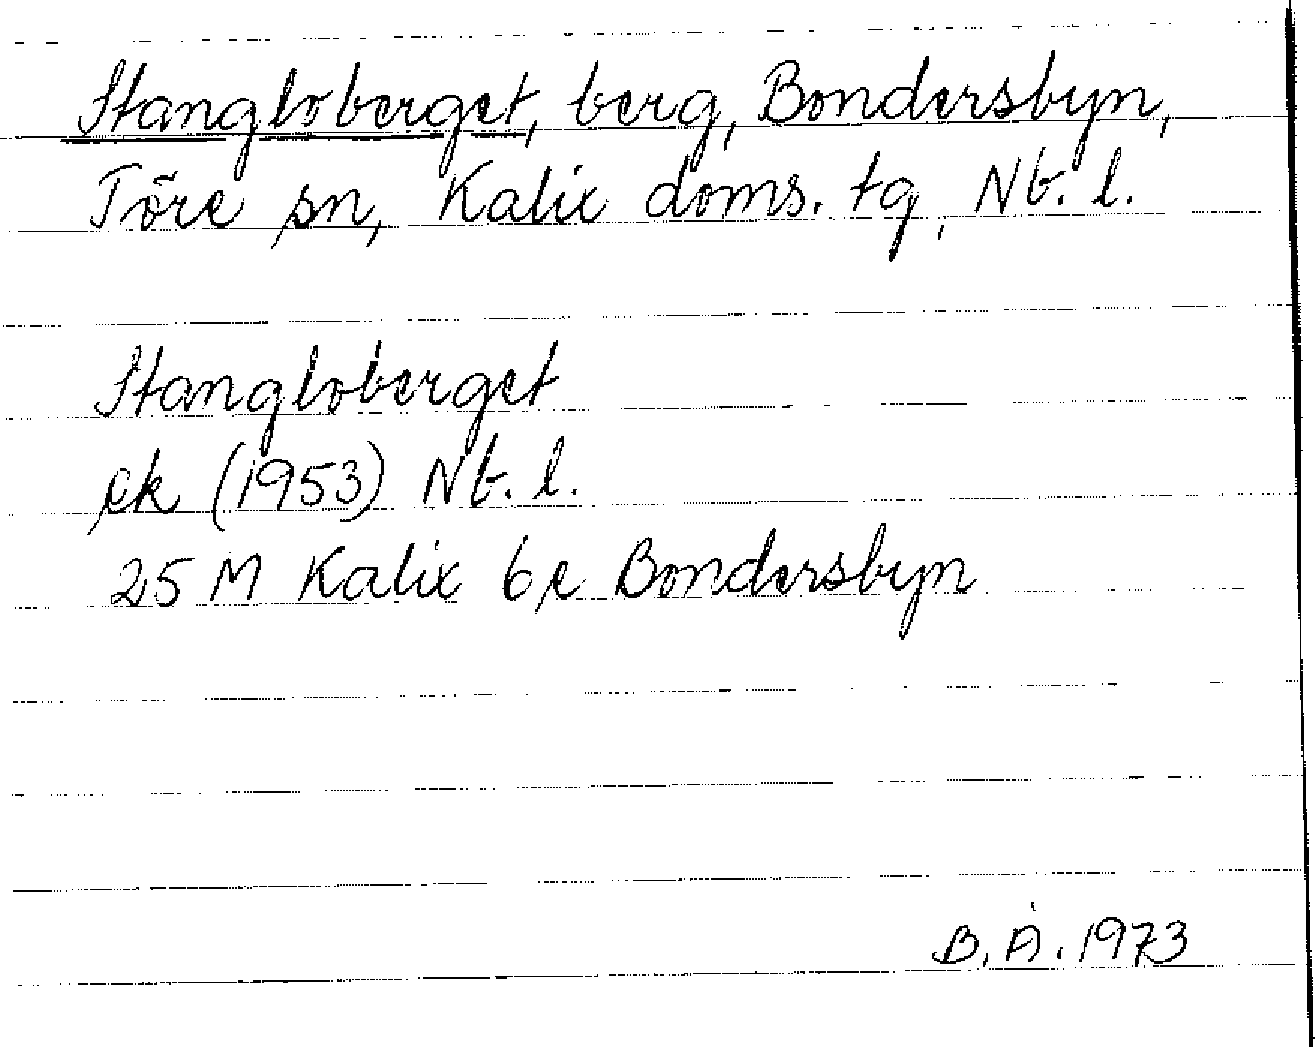 Stangloberget, berg, Bondersbyn,
Töre sn, Kalix doms. tg, Nb. l.
Stangloberget
ek (1953) Nb. l.
25 M Kalix 6c Bondersbyn
B. Å. 1973